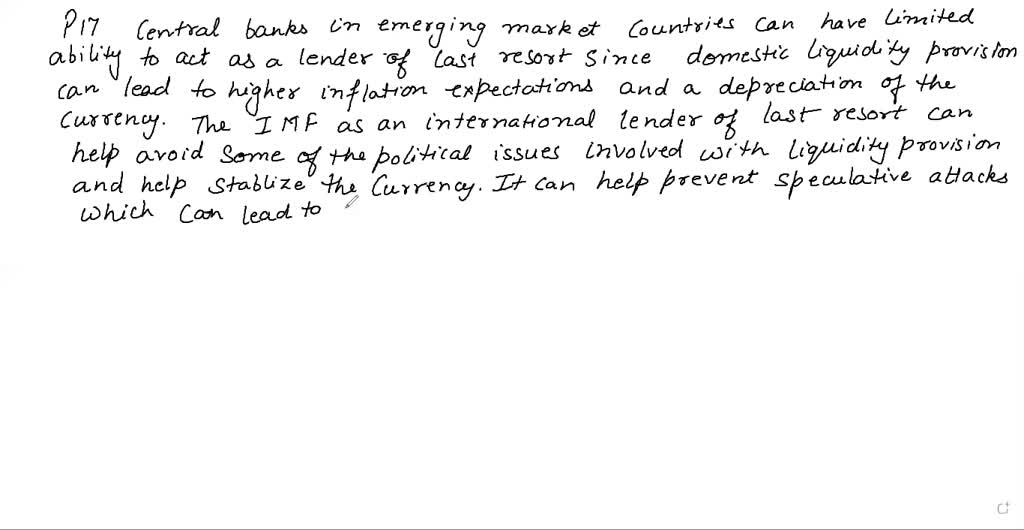 P17 Central banks in emerging market Countries can have limited
ability to act as a lender of last resort since domestic liquidity provision
can lead to higher inflation expectations and a depreciation of the
Currency. The IMF as an international lender of last resort can
help avoid some of the political issues involved with liquidity provision
and help stablize the Currency. It can help prevent speculative attacks
which can lead to